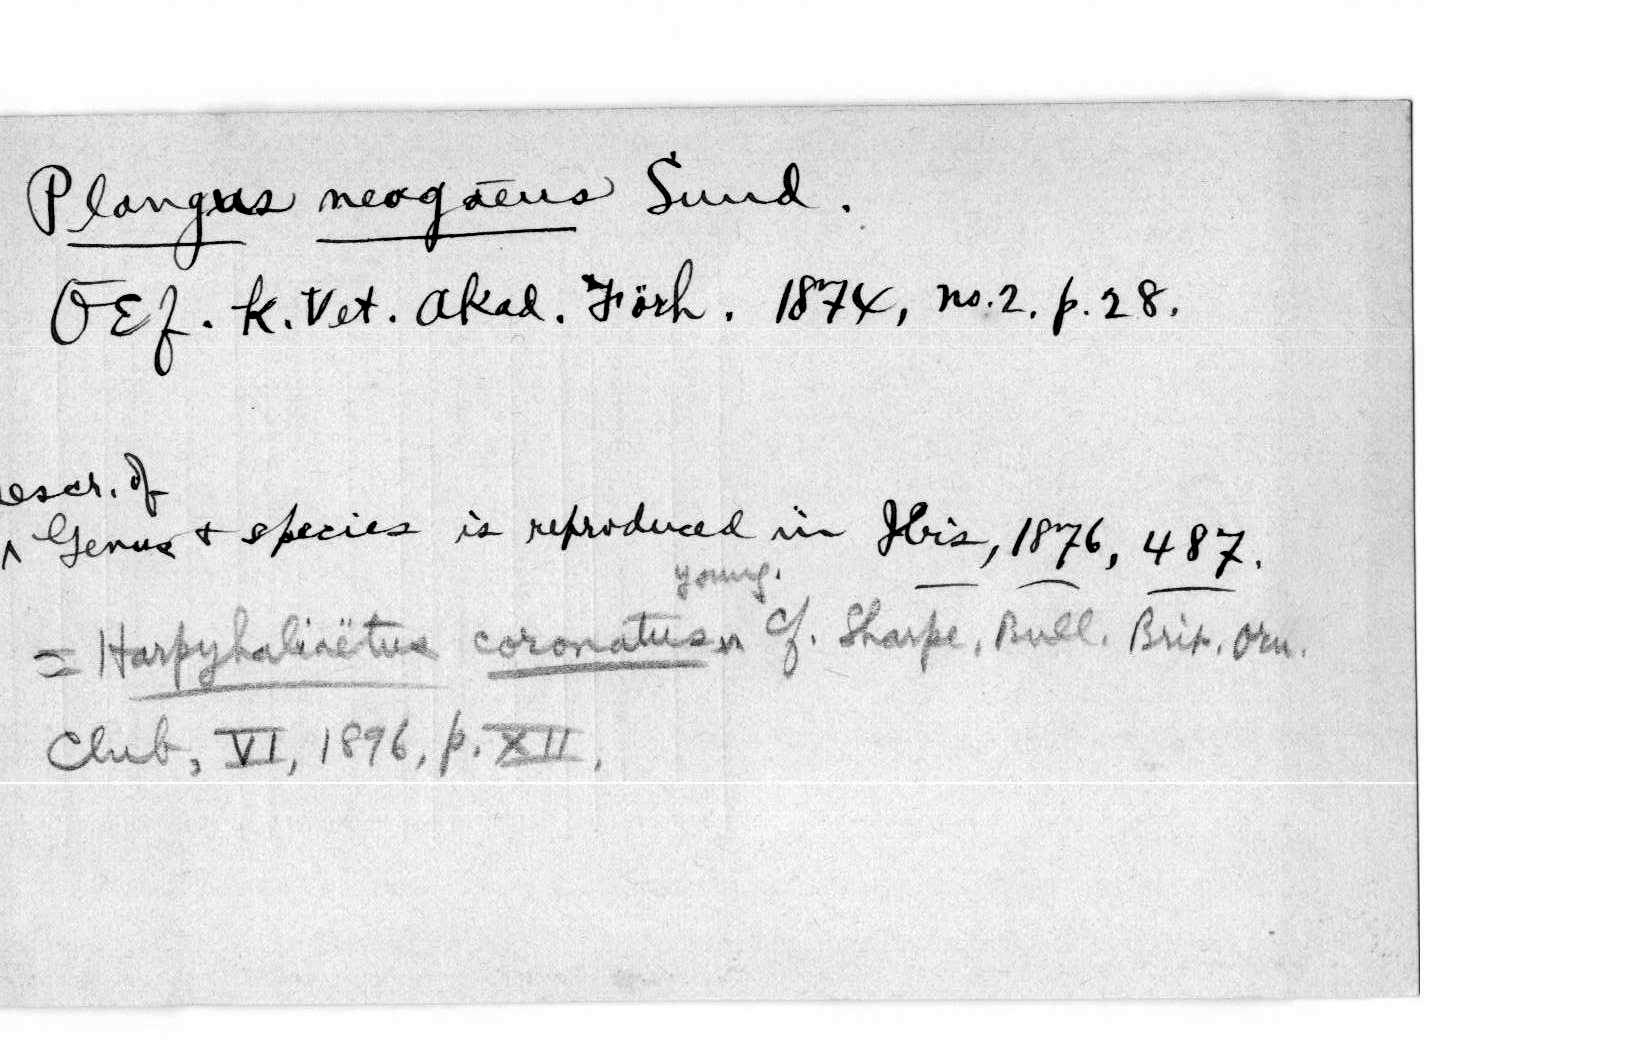 Plangus neogæus Sund.
ŒEf. K. Vet. Akad. Förh. 1874, no. 2. p. 28.
escr. of
^ Genus + species is reproduced in Ibis, 1876, 487.
young.
= Harpyhaliaëtus coronatus Cf. Sharpe, Bull. Brit. Orn.
Club, VI, 1896, p. XII.